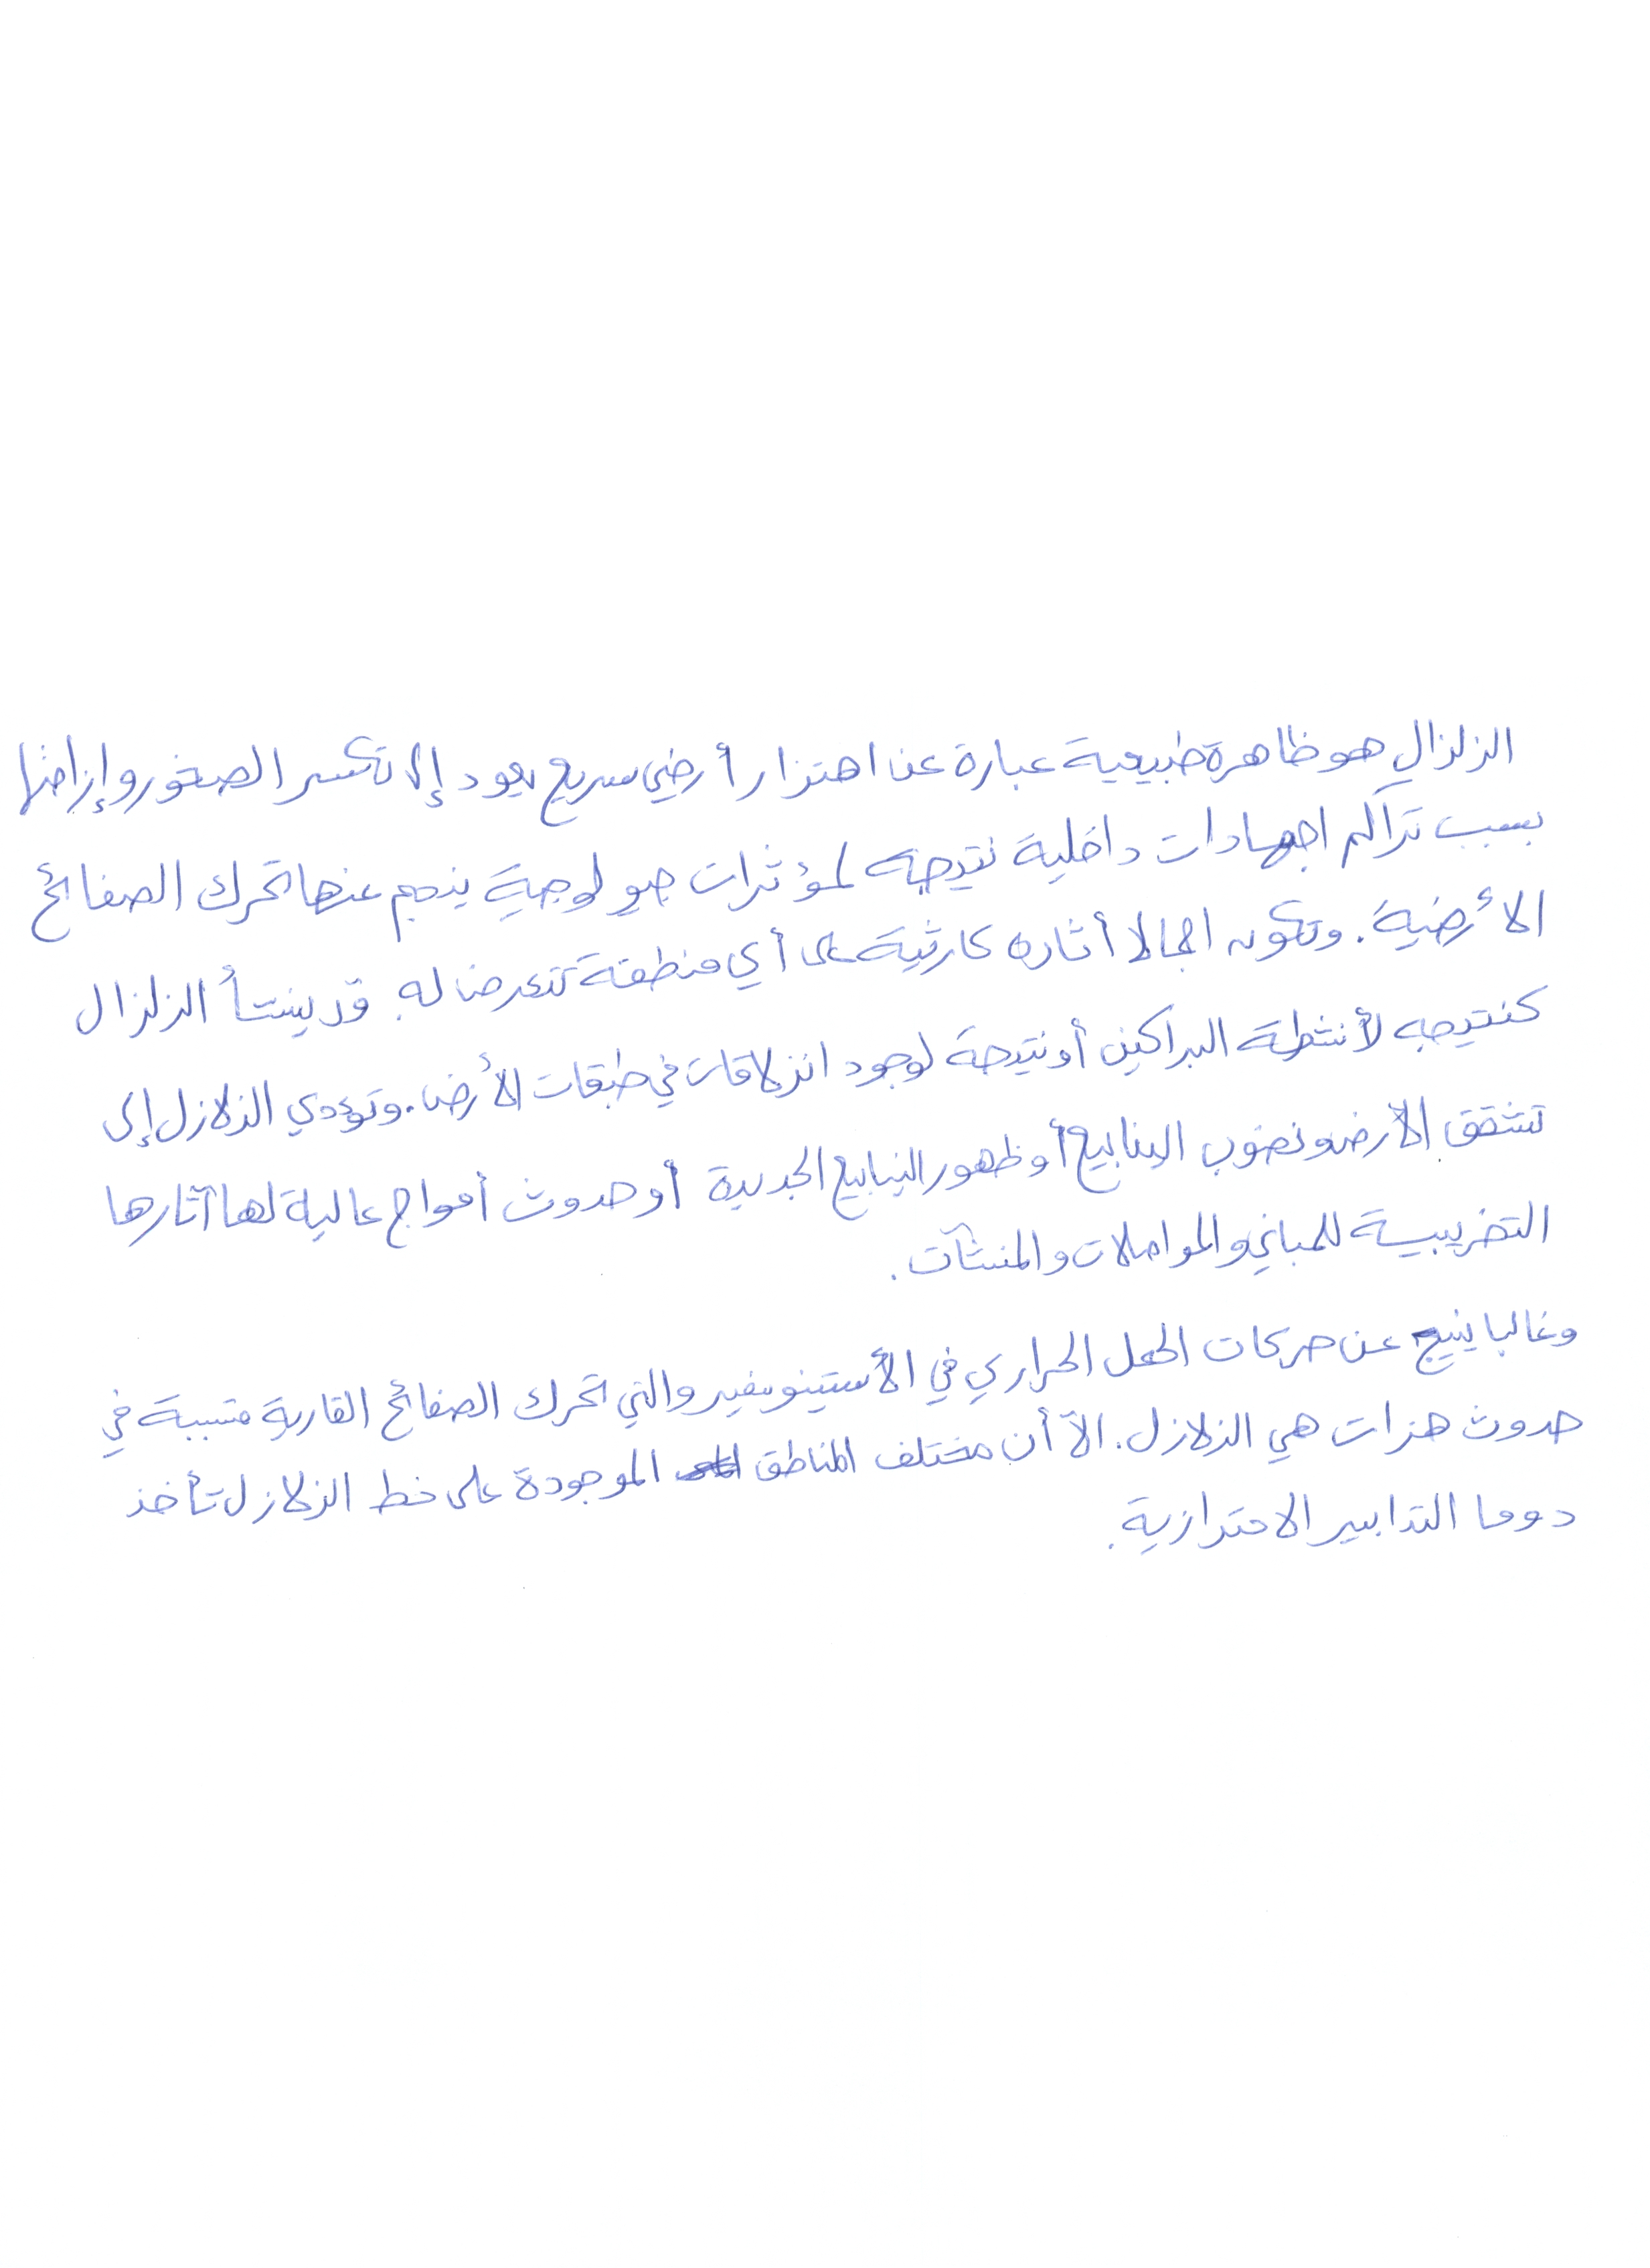 الزلزال هو ظاهرة طبيعية عبارة عن اهتزار أرضي سريع يعود إلا تكسر الصخور وإزاحتها
بسبب تراكم اجهادات داخلية نتيجة لمؤثرات جيولوجية ينجم عنها تحرك الصفائح
الأرضية. وتكون اجمالا أثاره كارثية على أي منطقة تتعرض له. قد ينشأ الزلزال
كنتيجه لأنشطة البراكين أو نتيجة لوجود انزلاقات في طبقات الأرض. وتؤدي الزلازل إلى
تشقق الأرض ونضوب الينابيع أو ظهور الينابيع الجديدة أو حدوث أمواج عالية لها آثارها
التخريبية للمباني والمواصلات والمنشآت.
وغالبا ينتج عن حركات الحمل الحراري في الأستينوسفير والتي تحرك الصفائح القارية متسببة في
حدوث هزات هي الزلازل. الا أن مختلف المناطق الموجودة على خط الزلازل تأخذ
دوما التدابير الاحترازية.